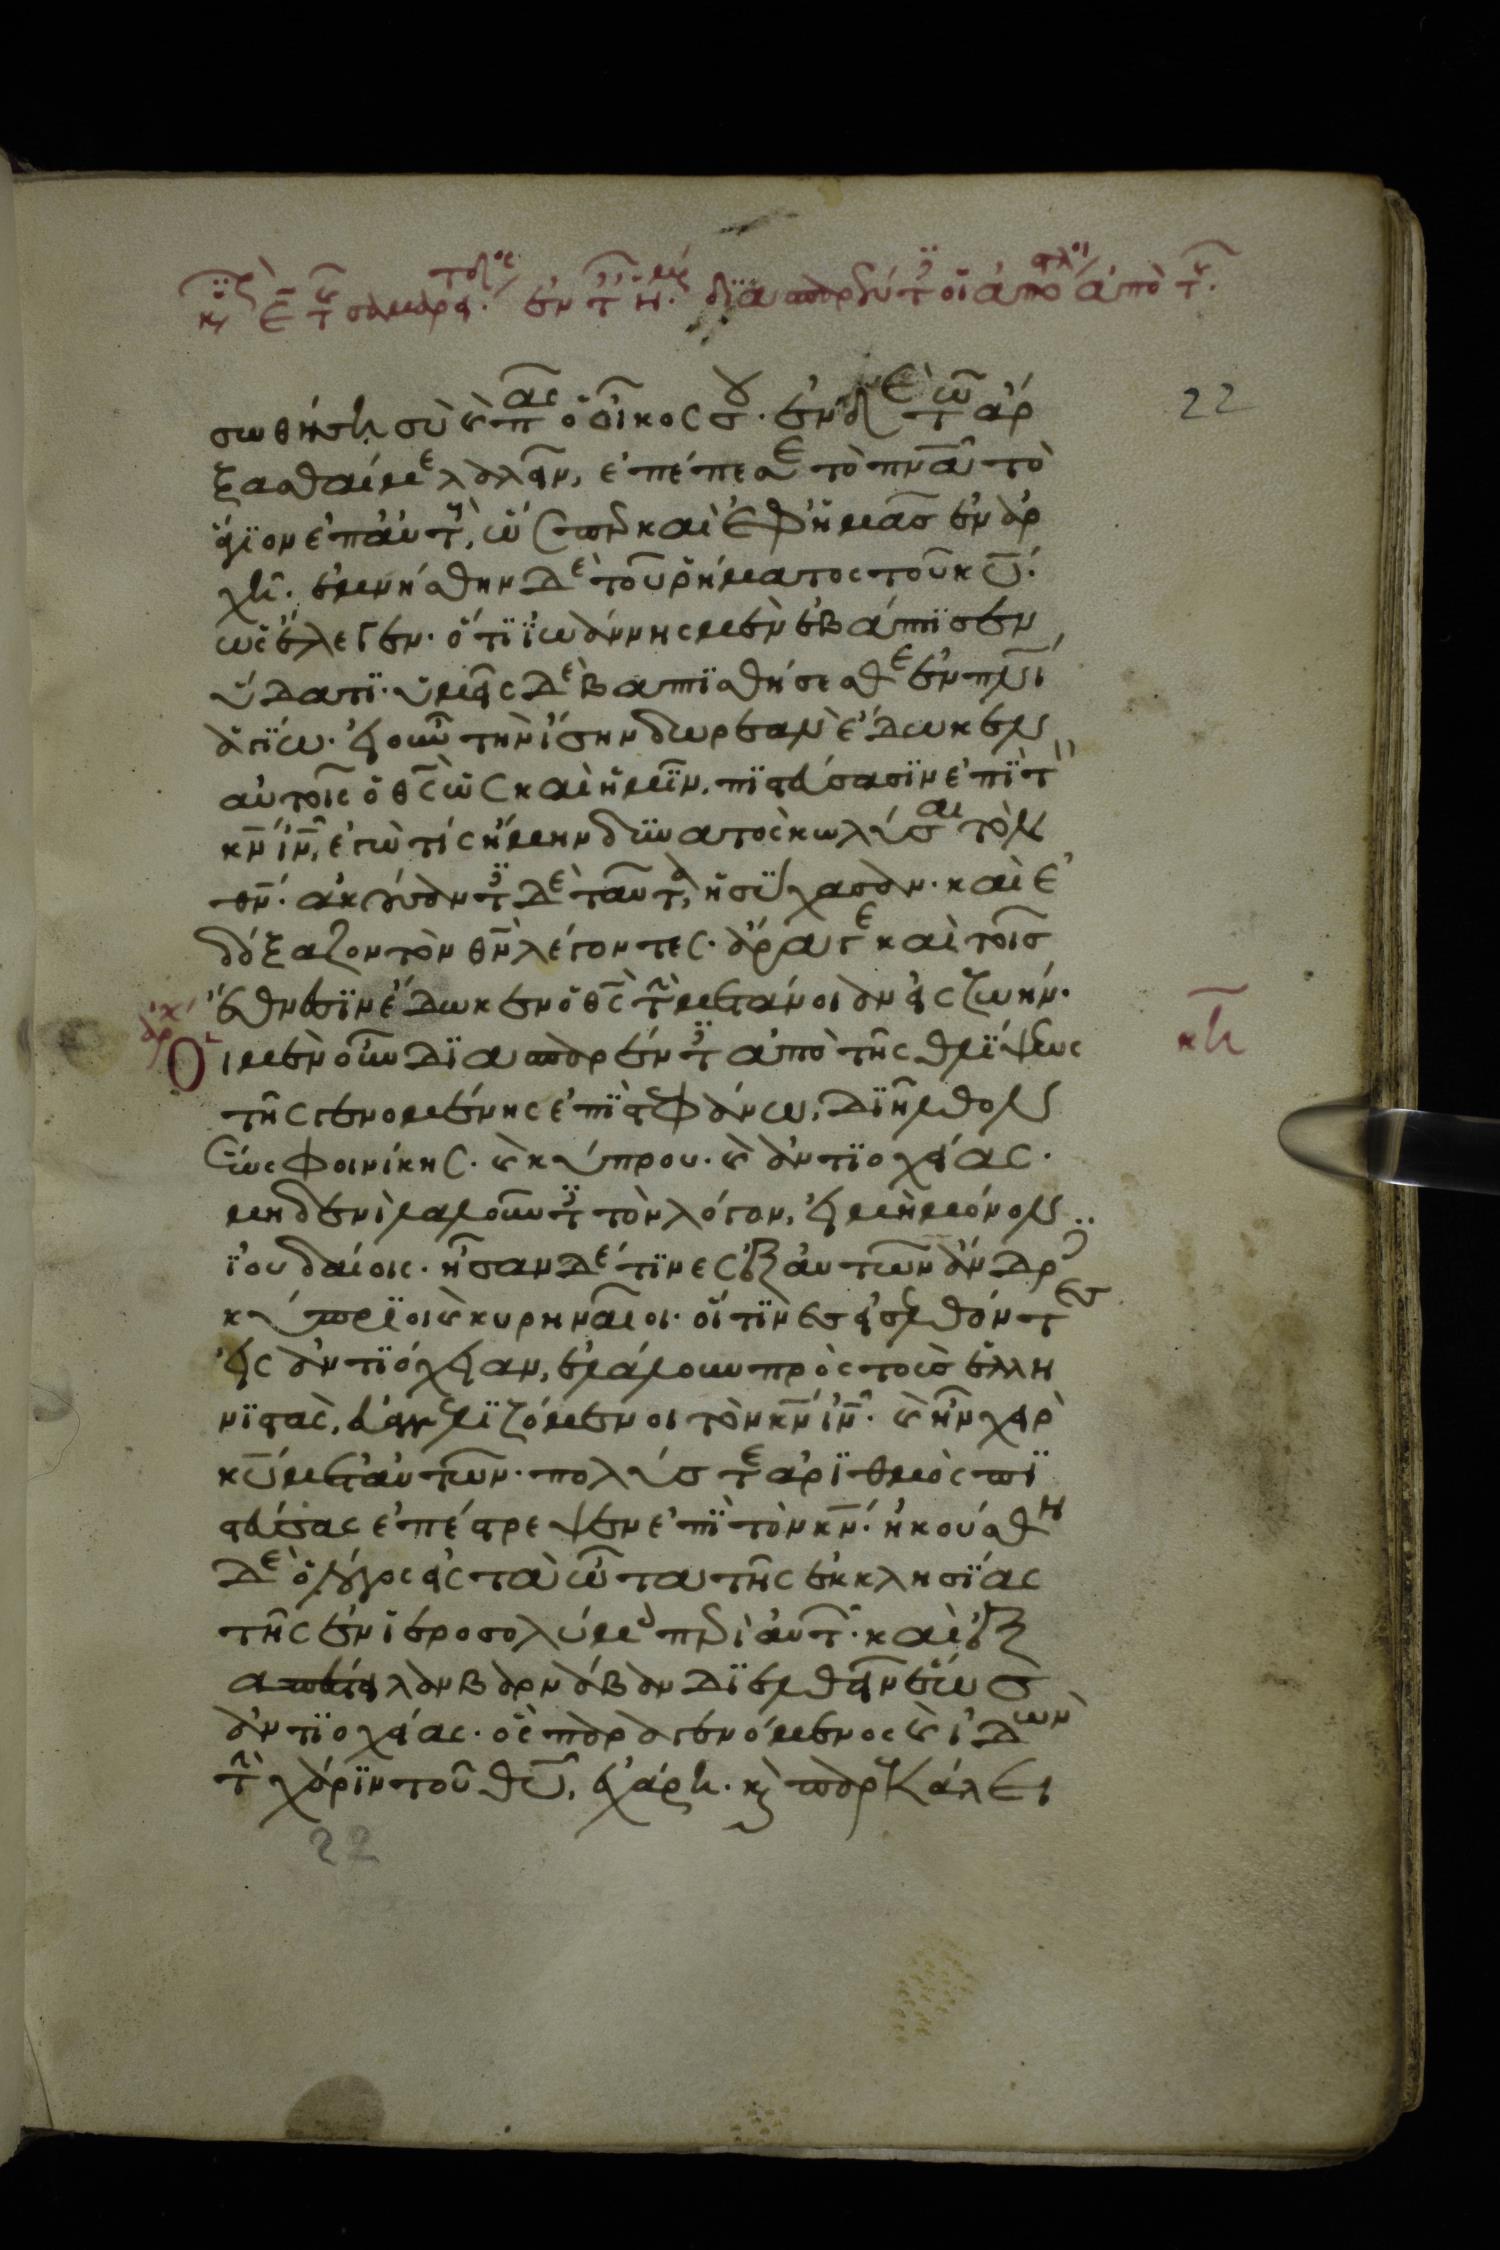 σωθήση σὺ καὶ πᾶς ὁ οἶκος σου· ἐν δὲ τῶ ἄρ
ξασθαί με λαλεῖν, ἐπέπεσε τὸ πνᾶ τὸ
ἅγιον ἐπ αὐτοὺς, ὥσπερ καὶ ἐφ ἡμᾶσ ἐν ἀρ
χῆ· ἐμνήσθην δὲ τοῦ ῥήματος τοῦ κυ·
ὡς ἔλεγεν· ὅτι ἰωάννης μὲν ἐβάπτισεν
ὕδατι· ὑμεῖς δὲ βαπτισθήσεσθε ἐν πνι
ἁγίω· εἰ οὖν τὴν ἴσην δωρεὰν ἔδωκεν
αὐτοῖς ὁ θς ὡς καὶ ἡμῖν, πιστεύσασιν ἐπὶ τὸν
κν ιν, ἐγὼ τίς ἤμην δυνατὸς κωλύσαι τὸν
θν· ἀκούσαντες δὲ ταῦτα, ἡσύχασαν· καὶ ἐ
δόξαζον τὸν θν λέγοντες· ἄρα γε καὶ τοῖσ
ἔθνεσιν ἔδωκεν ὁ θς τὴν μετάνοιαν εἰς ζωήν·
Οἱ μὲν οὖν διασπαρέντες ἀπὸ τῆς θλίψεως
τῆς γενομένης ἐπὶ στεφάνω, διῆλθον
ἕως φοινίκης· καὶ κύπρου· καὶ ἀντιοχείας·
μηδενὶ λαλοῦντες τὸν λόγον, εἰ μὴ μόνον
ἰουδαίοις· ἦσαν δέ τινες ἐξ αὐτῶν ἄνδρες
κύπριοι καὶ κυρηναῖοι· οἵτινεσ εἰσελθόντεσ
εἰς ἀντιόχειαν, ἐλάλουν πρὸς τοὺσ ἑλλη
νιστὰς, εὐαγγελιζόμενοι τὸν κν ιν· καὶ ἦν χεὶρ
κυ μετ αὐτῶν· πολύσ τε ἀριθμὸς πι
στεύσας ἐπέστρεψεν ἐπὶ τὸν κν· ἠκούσθη
δὲ ὁ λόγος εἰς τὰ ὦτα τῆς ἐκκλησίας
τῆς ἐν ἱεροσολύμοις περὶ αὐτῶν· καὶ ἐξ
απέστειλαν βαρνάβαν διελθεῖν ἕως
ἀντιοχείας· ὃς παραγενόμενος καὶ ἰδὼν
τὴν χάριν τοῦ θυ, ἐχάρη· καὶ παρεκάλει
22
22